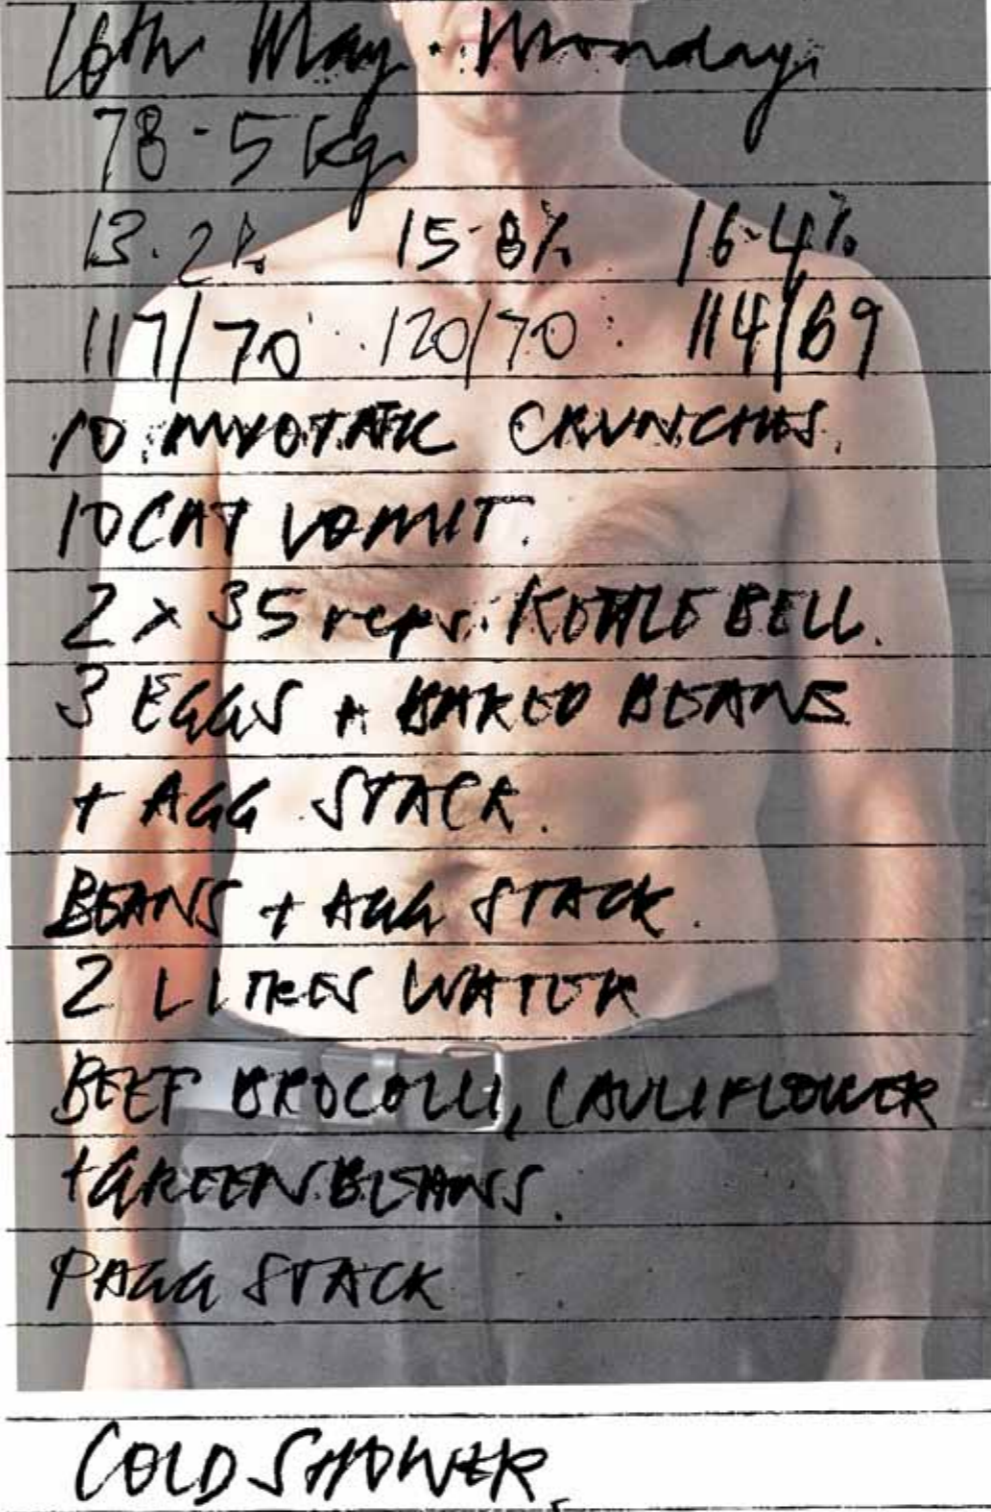 16th May. Monday.
78-5 kg
13.2% 15-8% 16-4%
117/70 120/70 114/69
10 MYOTATIC CRUNCHES.
10 CAT VOMIT.
2 x 35 reps. KETTLE BELL.
3 EGGS + BAKED BEANS
+ AGG STACK.
BEANS + AGG STACK.
2 LITRES WATER
BEEF BROCOLLI, CAULIFLOWER
+ GREEN BEANS.
PAGG STACK
COLD SHOWER.